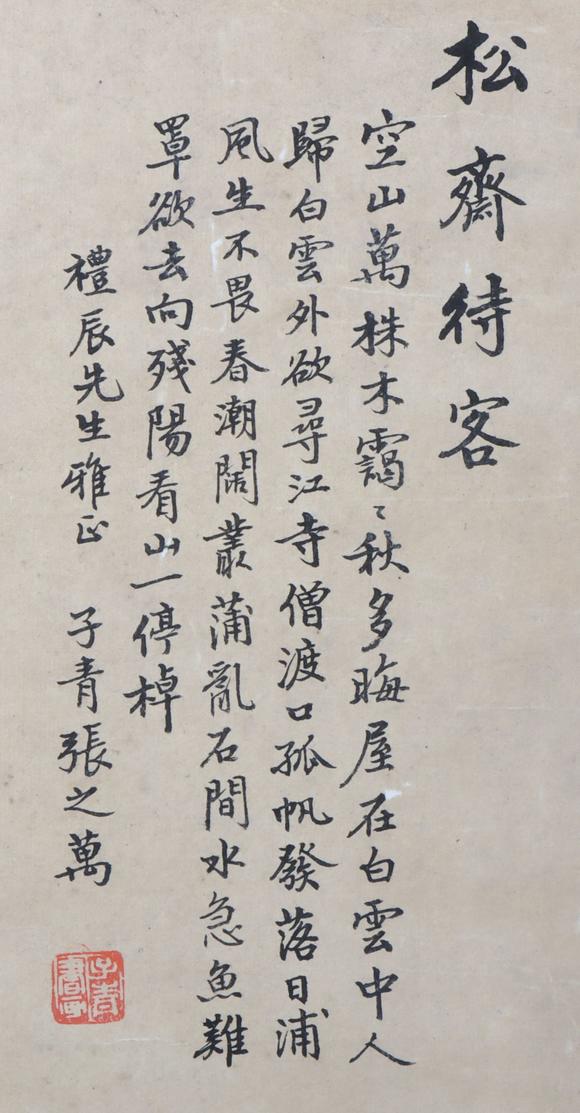 松齋待客
空山萬株木靄〻秋多晦屋在白雲中人
歸白雲外欲尋江寺僧渡口孤帆發落日浦
風生不畏春潮闊叢蒲亂石間水急魚難
罩欲去向殘陽看山一停棹
禮辰先生雅正 子青張之萬
子青
書画